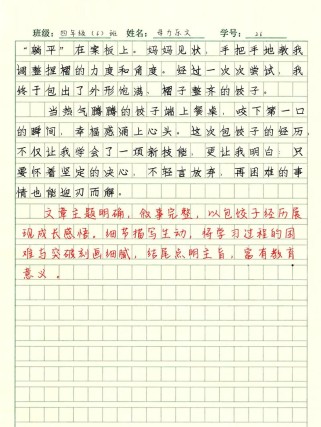 班级：四年级（6）班 姓名： 学号：26
“躺平”在案板上。妈妈见状，手把手地教我
调整捏褶的力度和角度。经过一次次尝试，我
终于包出了外形饱满，褶子整齐的饺子。
当热气腾腾的饺子端上餐桌，咬下第一口
的瞬间，幸福感涌上心头。这次包饺子的经历，
不仅让我学会了一项新技能，更让我明白：只
要怀着坚定的决心，不轻言放弃，再困难的事
情也能迎刃而解。
文章主题明确，叙事完整，以包饺子经历展
现成长感悟。细节描写生动，将学习过程的困
难与突破刻画细腻，结尾点明主旨，富有教育
意义。